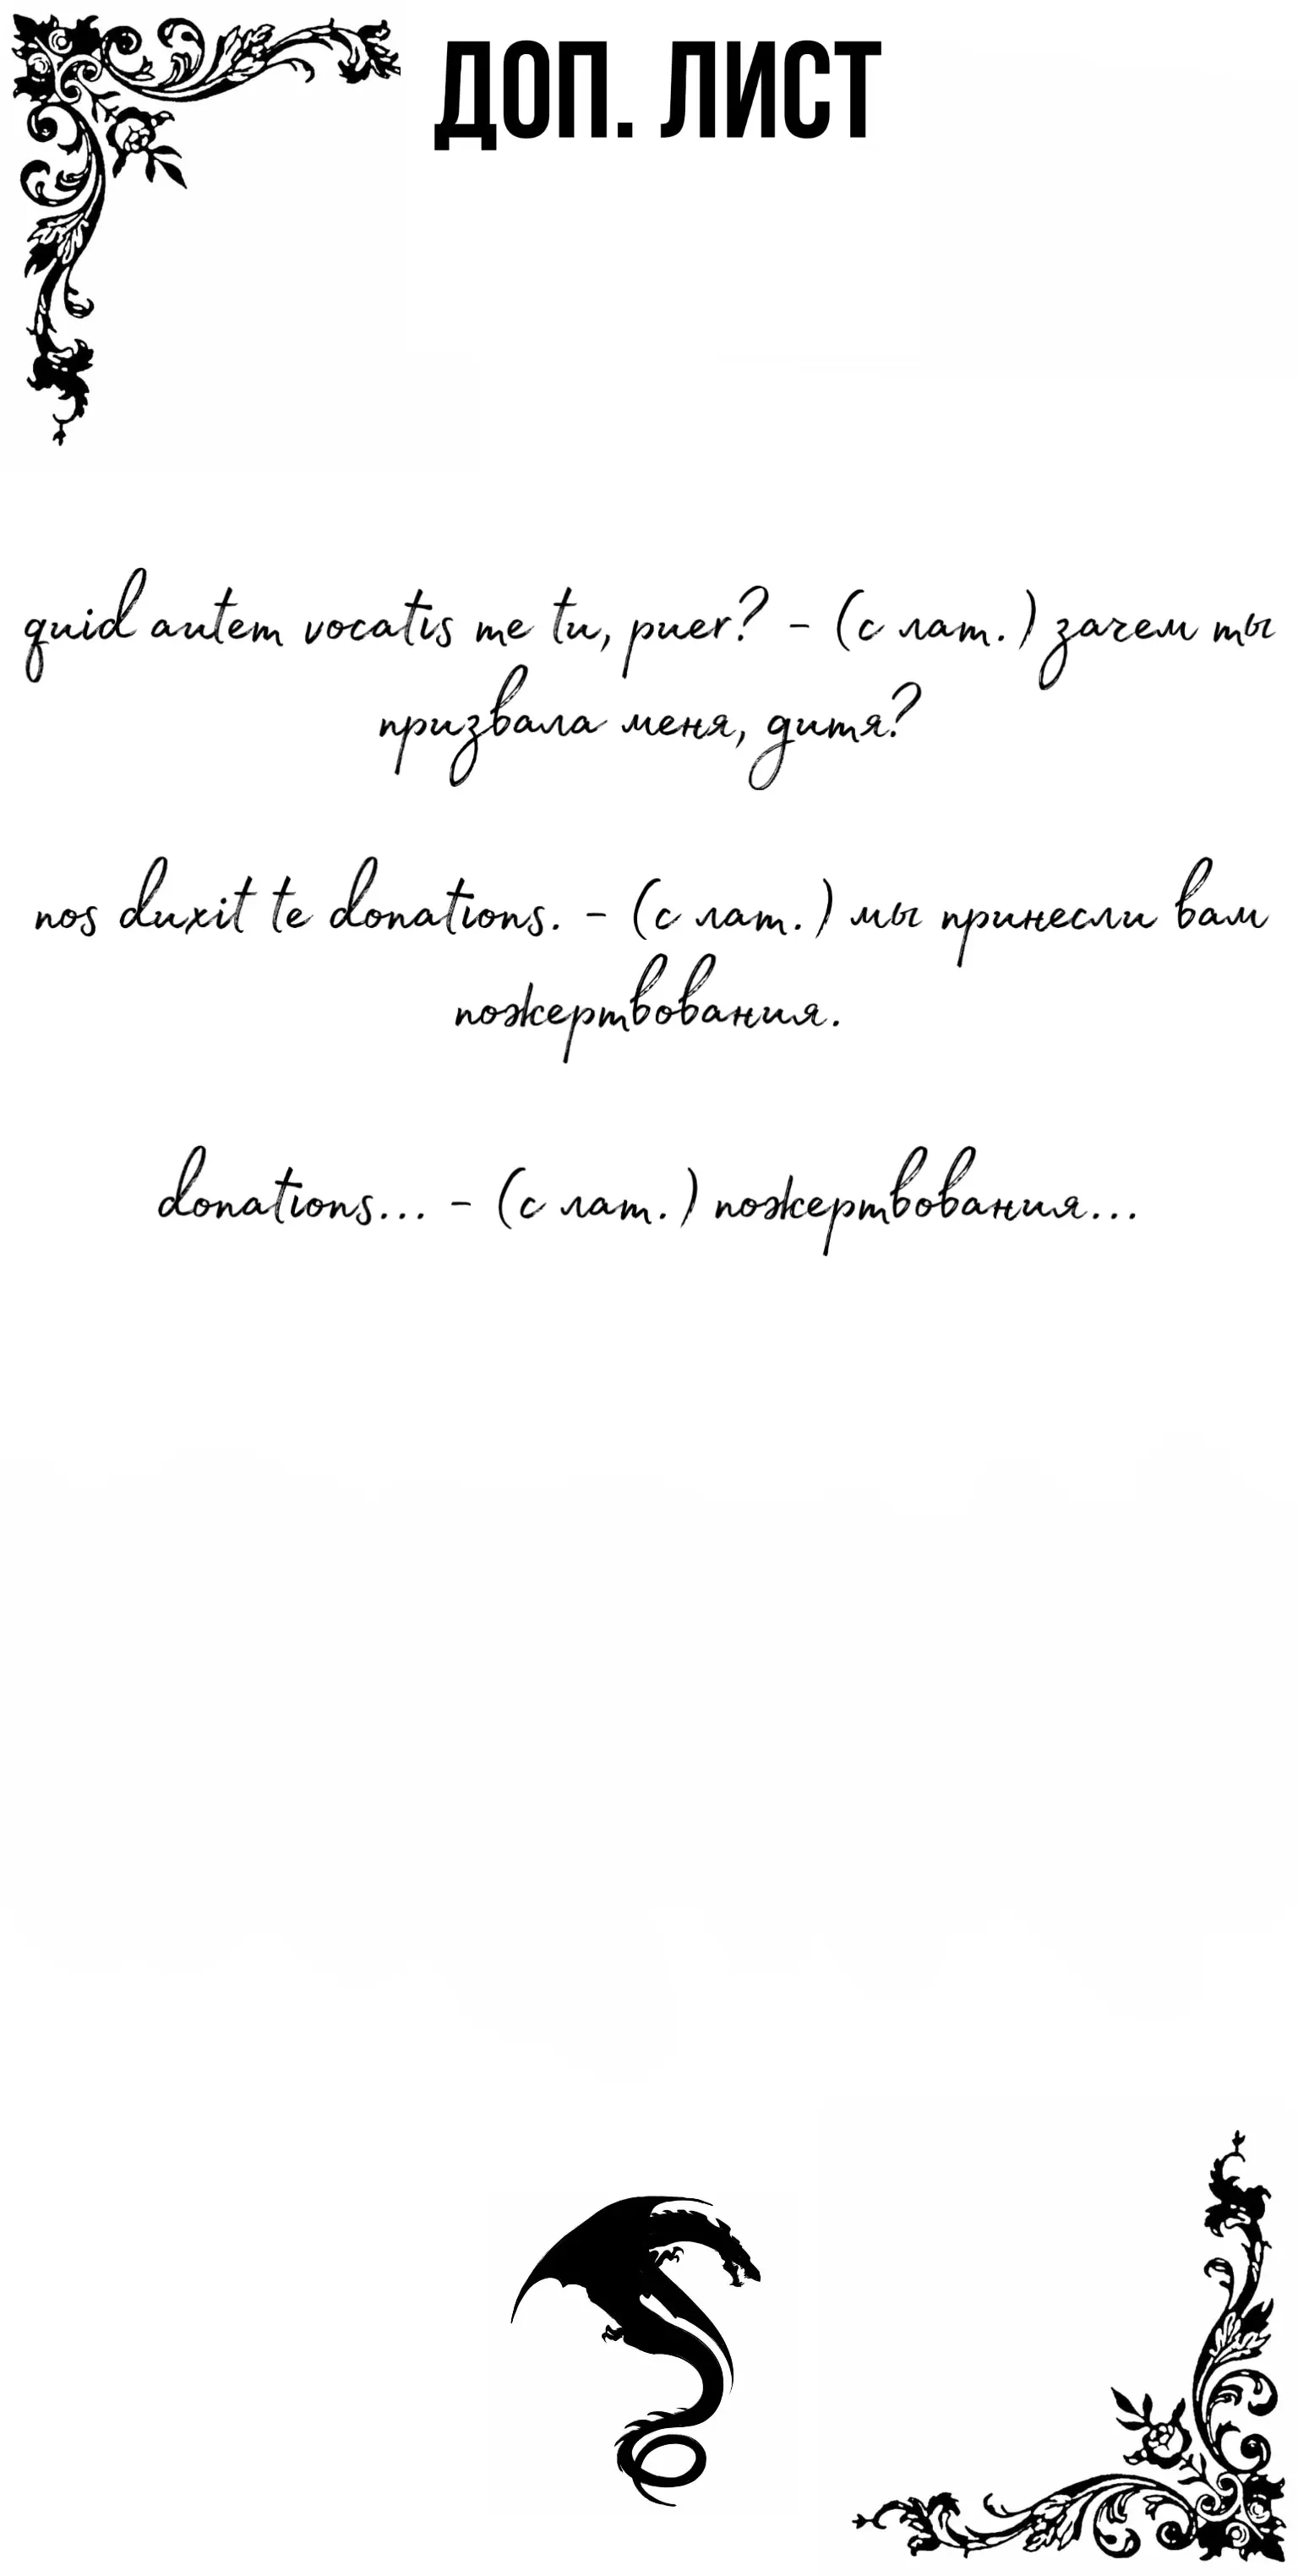 ДОП. ЛИСТ
quid autem vocatis me tu, puer? - (с лат.) зачем ты
призвала меня, дитя?
nos duxit te donations. - (с лат.) мы принесли вам
пожертвования.
donations... - (с лат.) пожертвования...